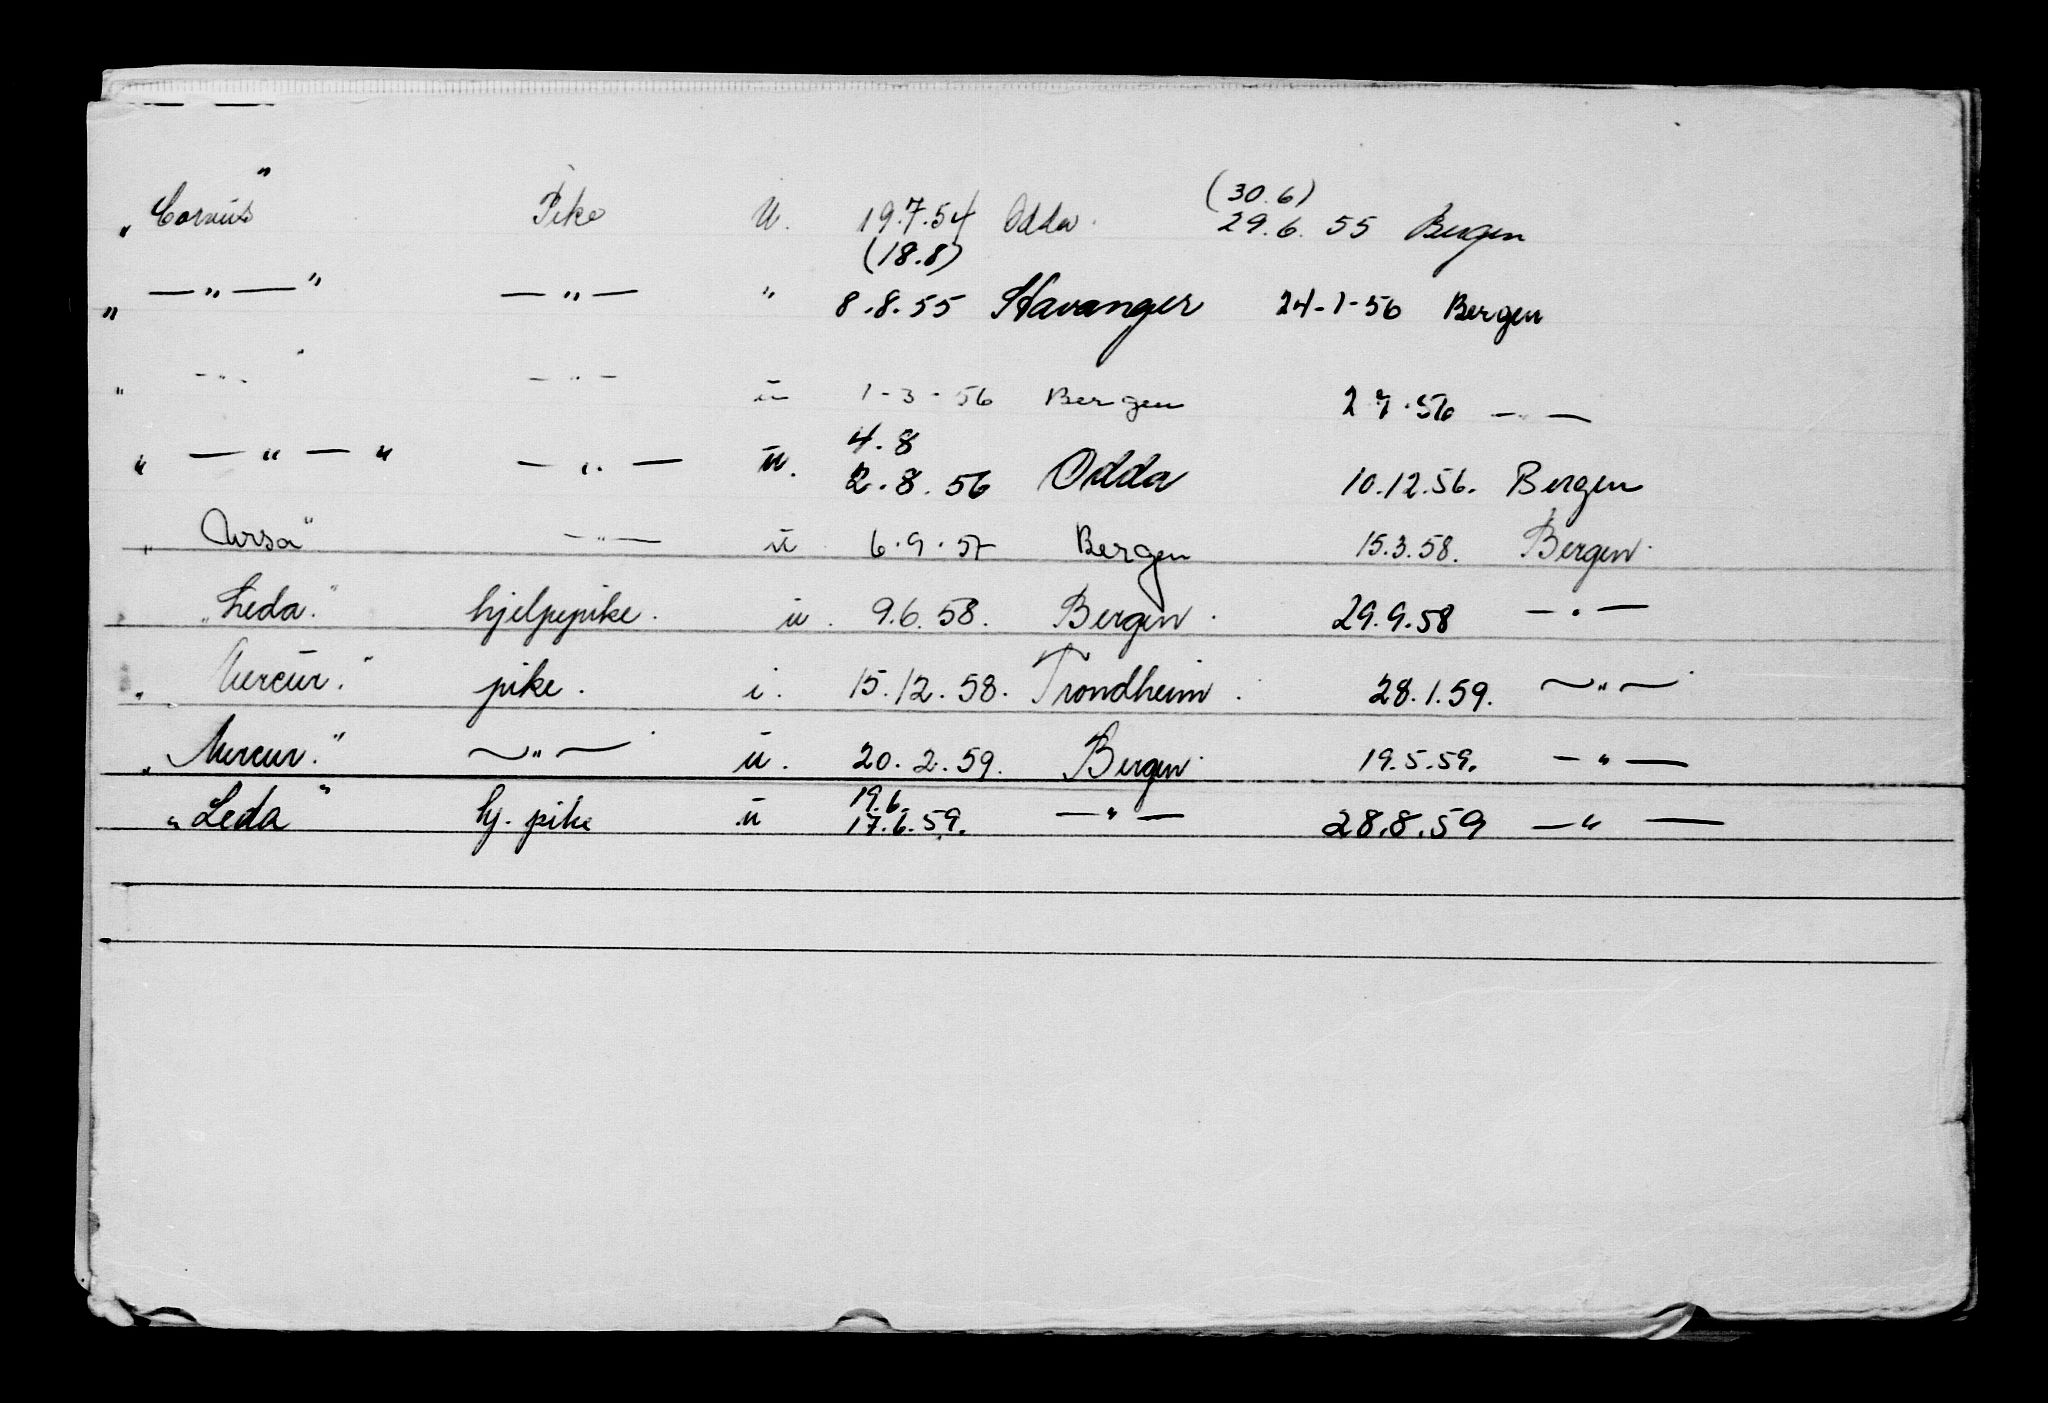 (30.6)
„Corvus" Pike U. 19.7.54 Odda. 29.6.55 Bergen
(18.8)
„—„—" —„— „ 8.8.55 Stavanger 24-1-56 Bergen
„ —„— —„— u 1-3-56 Bergen 2.7.56 —„—
4.8
„—„—" —„— u. 2.8.56 Odda 10.12.56. Bergen
„Ursa" —„— u 6.9.57 Bergen 15.3.58. Bergen.
„Leda." hjelpepike. u. 9.6.58. Bergen. 29.9.58 —„—
„Mercur." pike. i. 15.12.58. Trondheim. 28.1.59. —„—
„Mercur." —„— u. 20.2.59. Bergen. 19.5.59. —„—
19.6
„Leda" hj. pike u 17.6.59. —„— 28.8.59 —„—